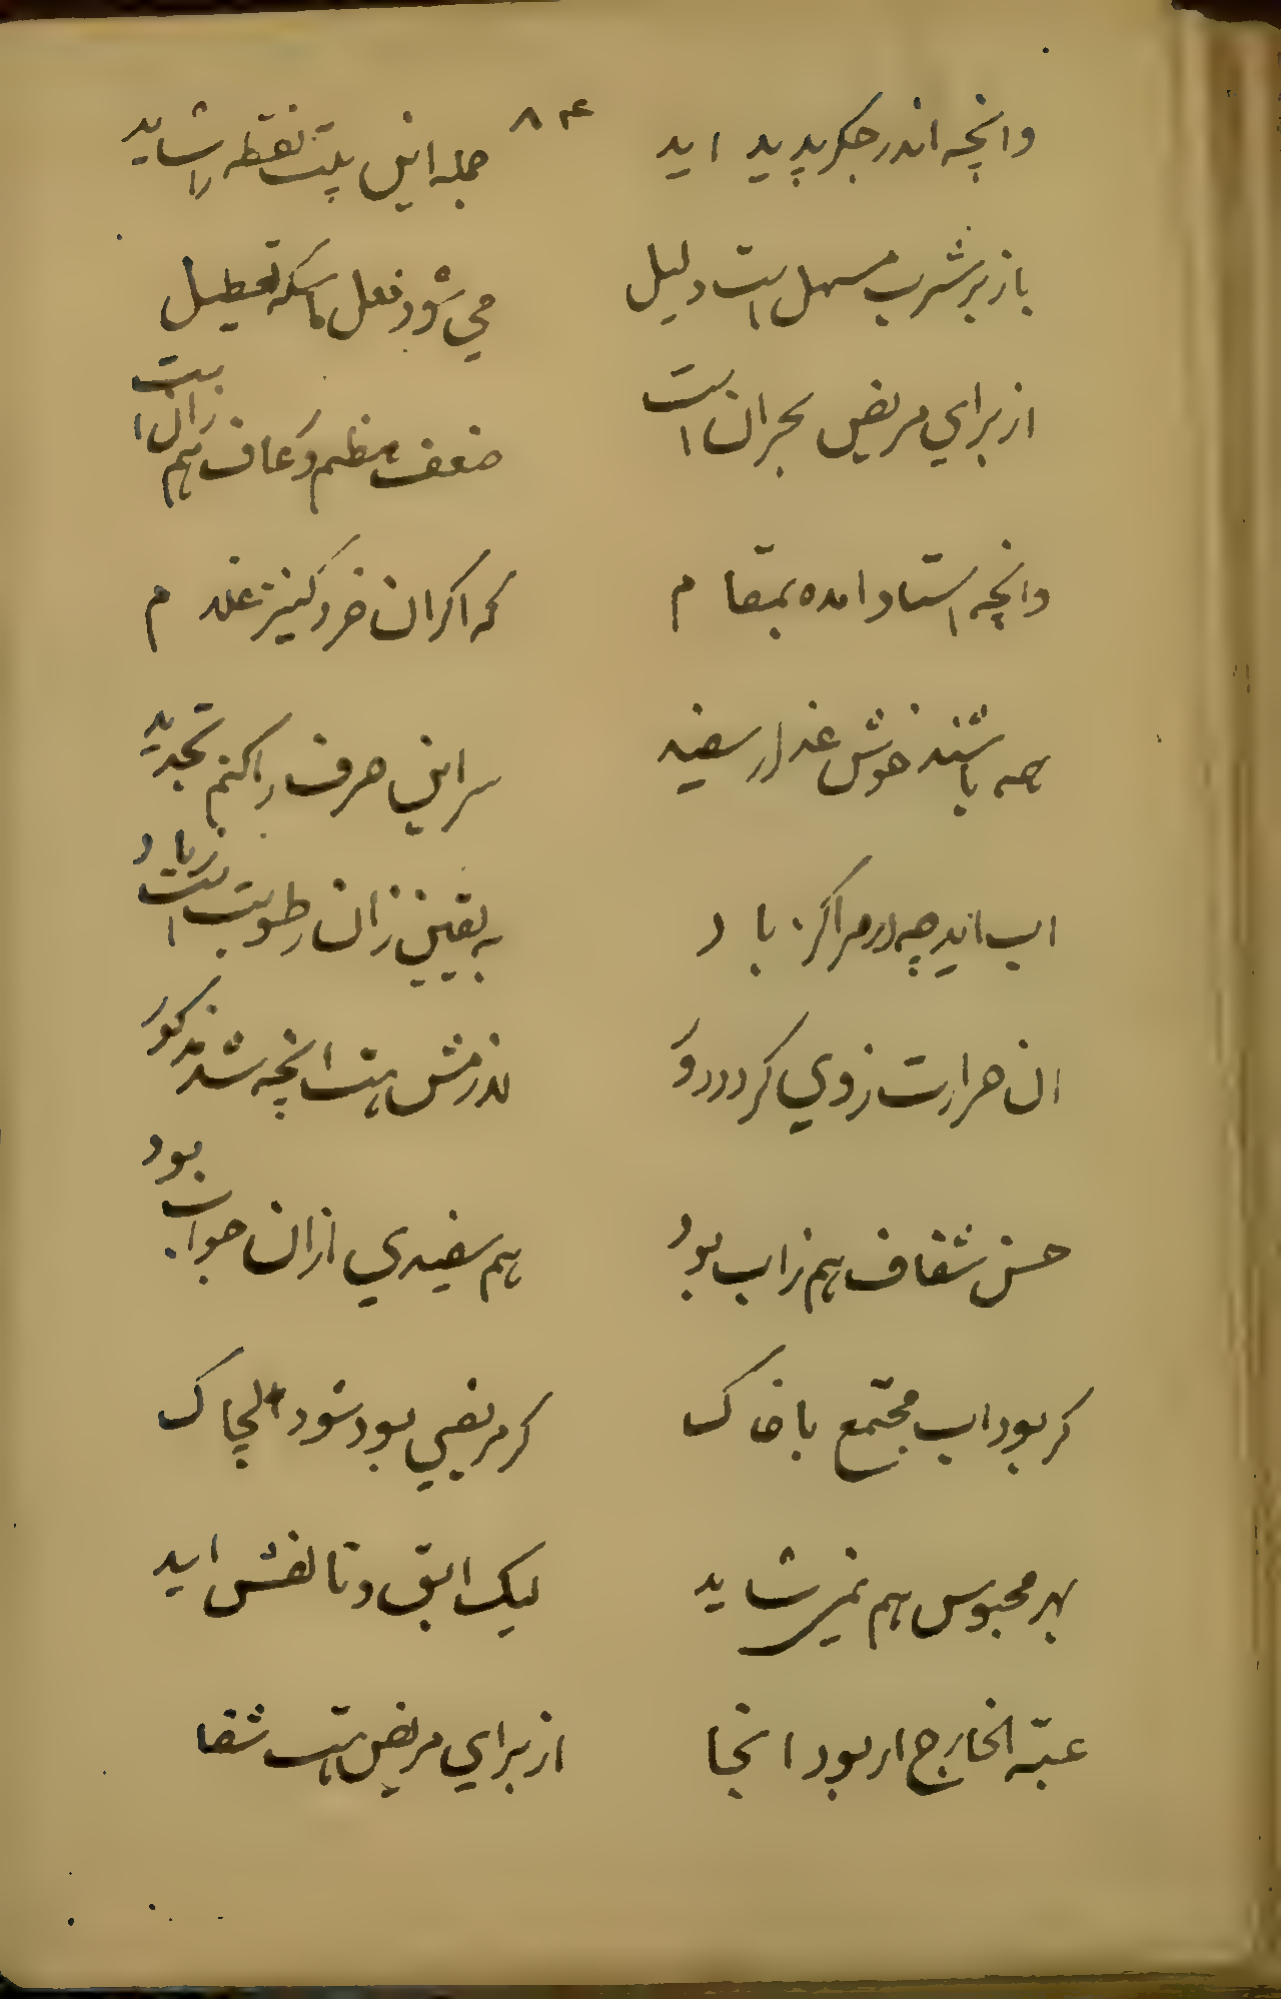 ۸۴
وانچه اندر جکر پدید اید جمله این بیست نقطه را شاید
باز بر شرب مسهل است دلیل می شود فعل ماسکه تعطیل
از برای مریض بحران است ضعف هظم و عاف هم زان است
وانچه استاد امده بمقام که اکر ان خرد کنیز غلام
همه باشند خوش عذار سفید سر این حرف را کنم تجدید
اب اندر چه در مراکز باد به یقین زان رطوبت است زیاد
ان حرارت زوی کردد دور لازمش هست انچه شد مذکور
حسن شفاف هم ز اب بود هم سفیدی ازان جواب بود
کر بود اب مجتمع با خاک کر مریضی بود شود چاک
بهر محبوس هم نمیشاید لیک ابق و تالفش اید
عتبة الخارج ار بود انجا از برای مریض هست شفا